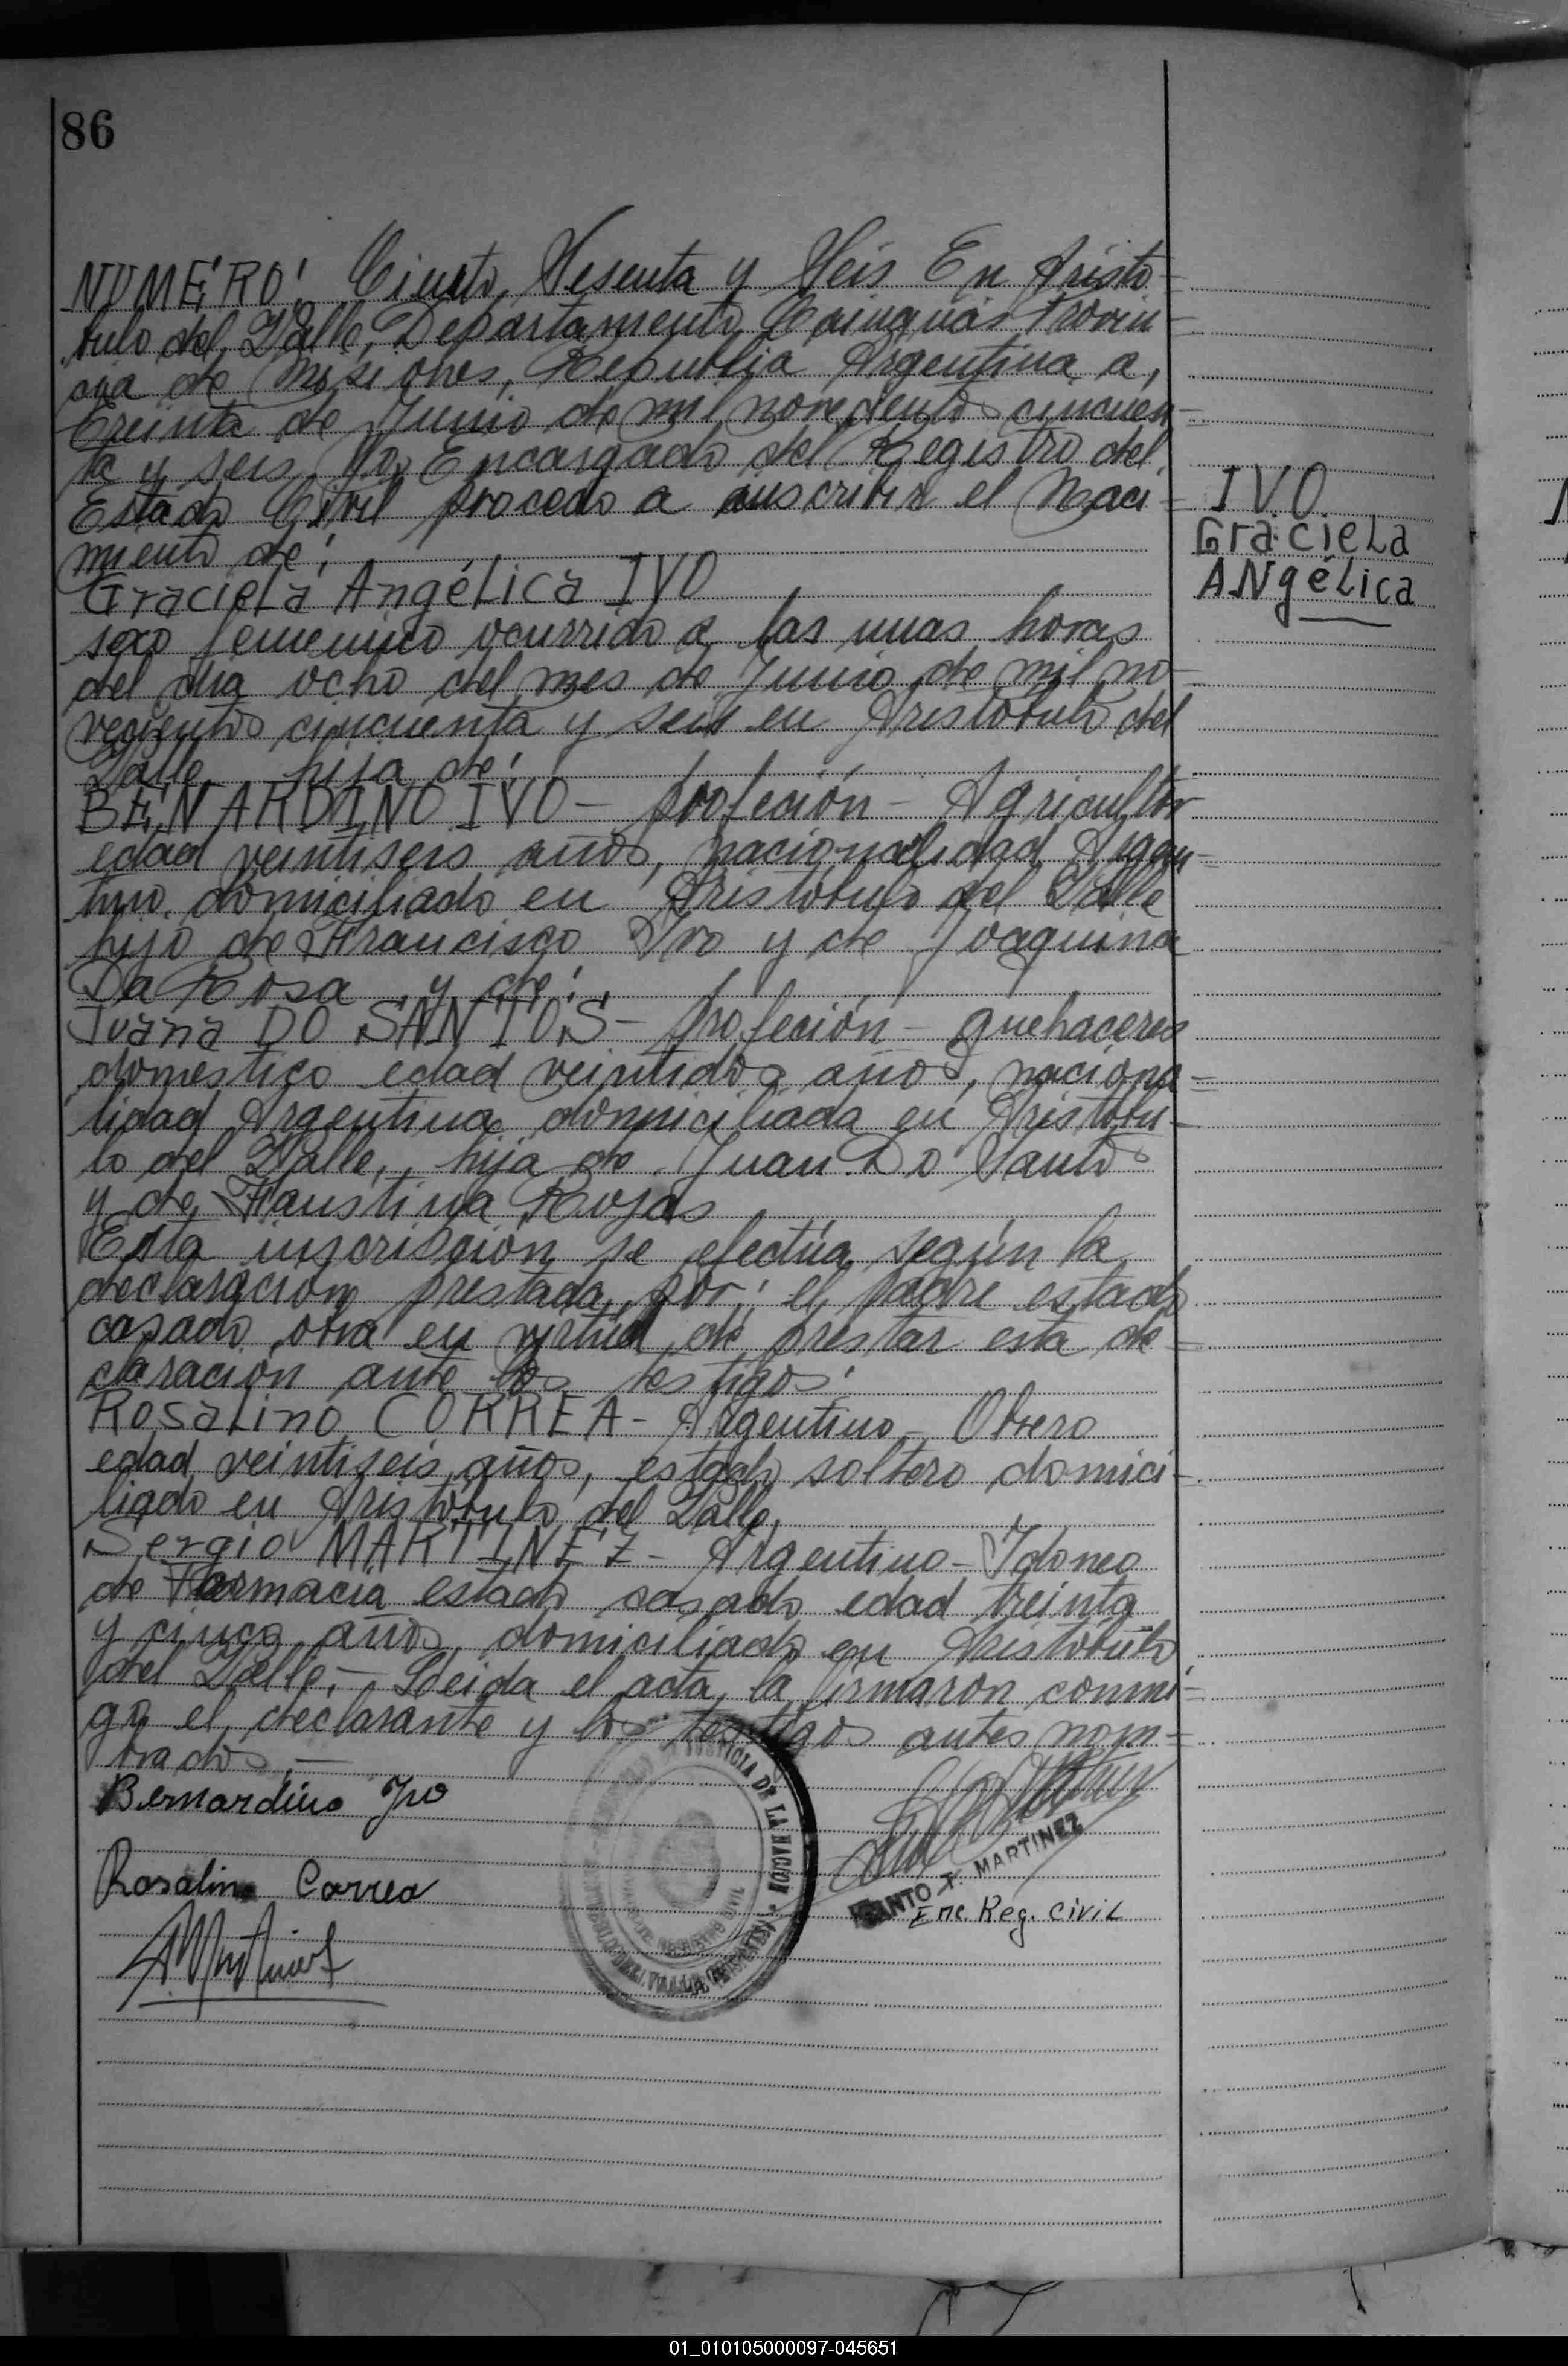 86
NUMÉRO: Ciento Sesenta y Seis En Aristó-
bulo del Valle, Departamento Cainguás Provin-
cia de Misiones, Republica Argentina a,
treinta de Junio de mil novecientos cincuen-
ta y seis, Yo, Encargado del Registro del
Estado Civil procedo a inscribir el Naci-
miento de:
Graciela Angélica IVO
sexo femenino ocurrido a las unas horas
del dia ocho del mes de Junio de mil no-
vecientos cincuenta y seis en Aristóbulo del
Valle, hija de:
BENARDINO IVO - profeción - Agricultor
edad veintiseis años, nacionalidad Argen-
tino, domiciliado en Aristóbulo del Valle
hijo de Francisco Ivo y de Joaquina
Da Rosa y de:
Juana DO SANTOS - profeción - quehaceres
domestico edad veintidos años, naciona-
lidad Argentina domiciliada en Aristóbu-
lo del Valle, hija de Juan Do Santos
y de Faustina Rojas
Esta inscripción se efectúa según la
declaración prestada por: el padre estado
casado, en virtud de prestar esta de-
claración ante los testigos:
Rosalino CORREA - Argentino - Obrero
edad veintiseis años, estado soltero domici-
liado en Aristóbulo del Valle,
Sergio MARTINEZ - Argentino - Idoneo
de Farmacia estado casado edad treinta
y cinco años, domiciliado en Aristóbulo
del Valle, - Leida el acta, la firmaron conmi-
go el declarante y los testigos antes nom-
brados. -
IVO
Graciela
ANgélica
Bernardino Ivo
Rosalino Correa
JUSTICIA DE LA NACION
T. MARTINEZ
Enc Reg. civil
01_010105000097-045651